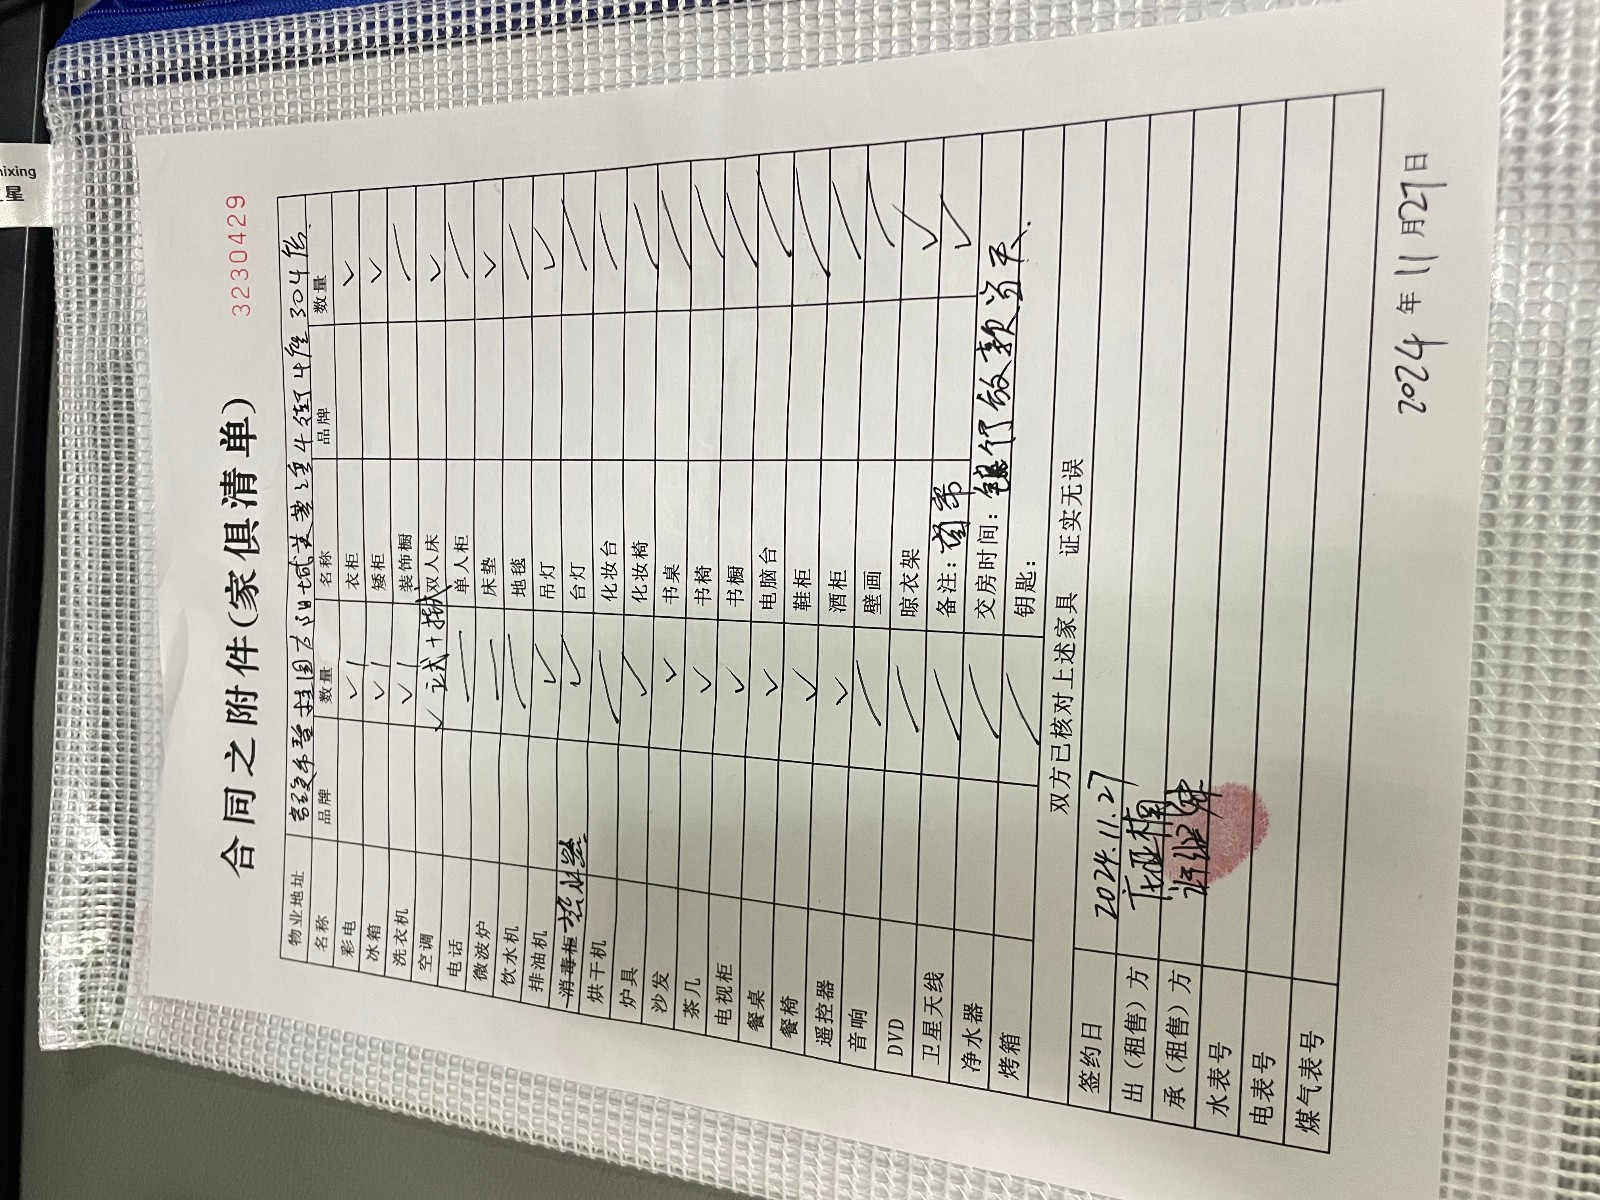 合同之附件(家俱清单)
3230429
物业地址 304
名称 品牌 数量 名称 品牌 数量
彩电 ✓ 衣柜 ✓
冰箱 ✓ 矮柜 ✓
洗衣机 ✓ 装饰橱 /
空调 ✓ 双人床 ✓
电话 / 单人柜 /
微波炉 / 床垫 ✓
饮水机 / 地毯 /
排油机 ✓ 吊灯 ✓
消毒柜 热水器 ✓ 台灯 /
烘干机 / 化妆台 /
炉具 ✓ 化妆椅 /
沙发 ✓ 书桌 /
茶几 ✓ 书椅 /
电视柜 ✓ 书橱 /
餐桌 ✓ 电脑台 /
餐椅 ✓ 鞋柜 /
遥控器 ✓ 酒柜 /
音响 / 壁画 /
DVD / 晾衣架 ✓
卫星天线 / 备注: 窗帘 ✓
净水器 / 交房时间: 银行放款当天
烤箱 / 钥匙:
双方已核对上述家具 证实无误
签约日 2024.11.27
出(租售)方
承(租售)方
水表号
电表号
煤气表号
2024 年 11 月 27 日
nixing
星